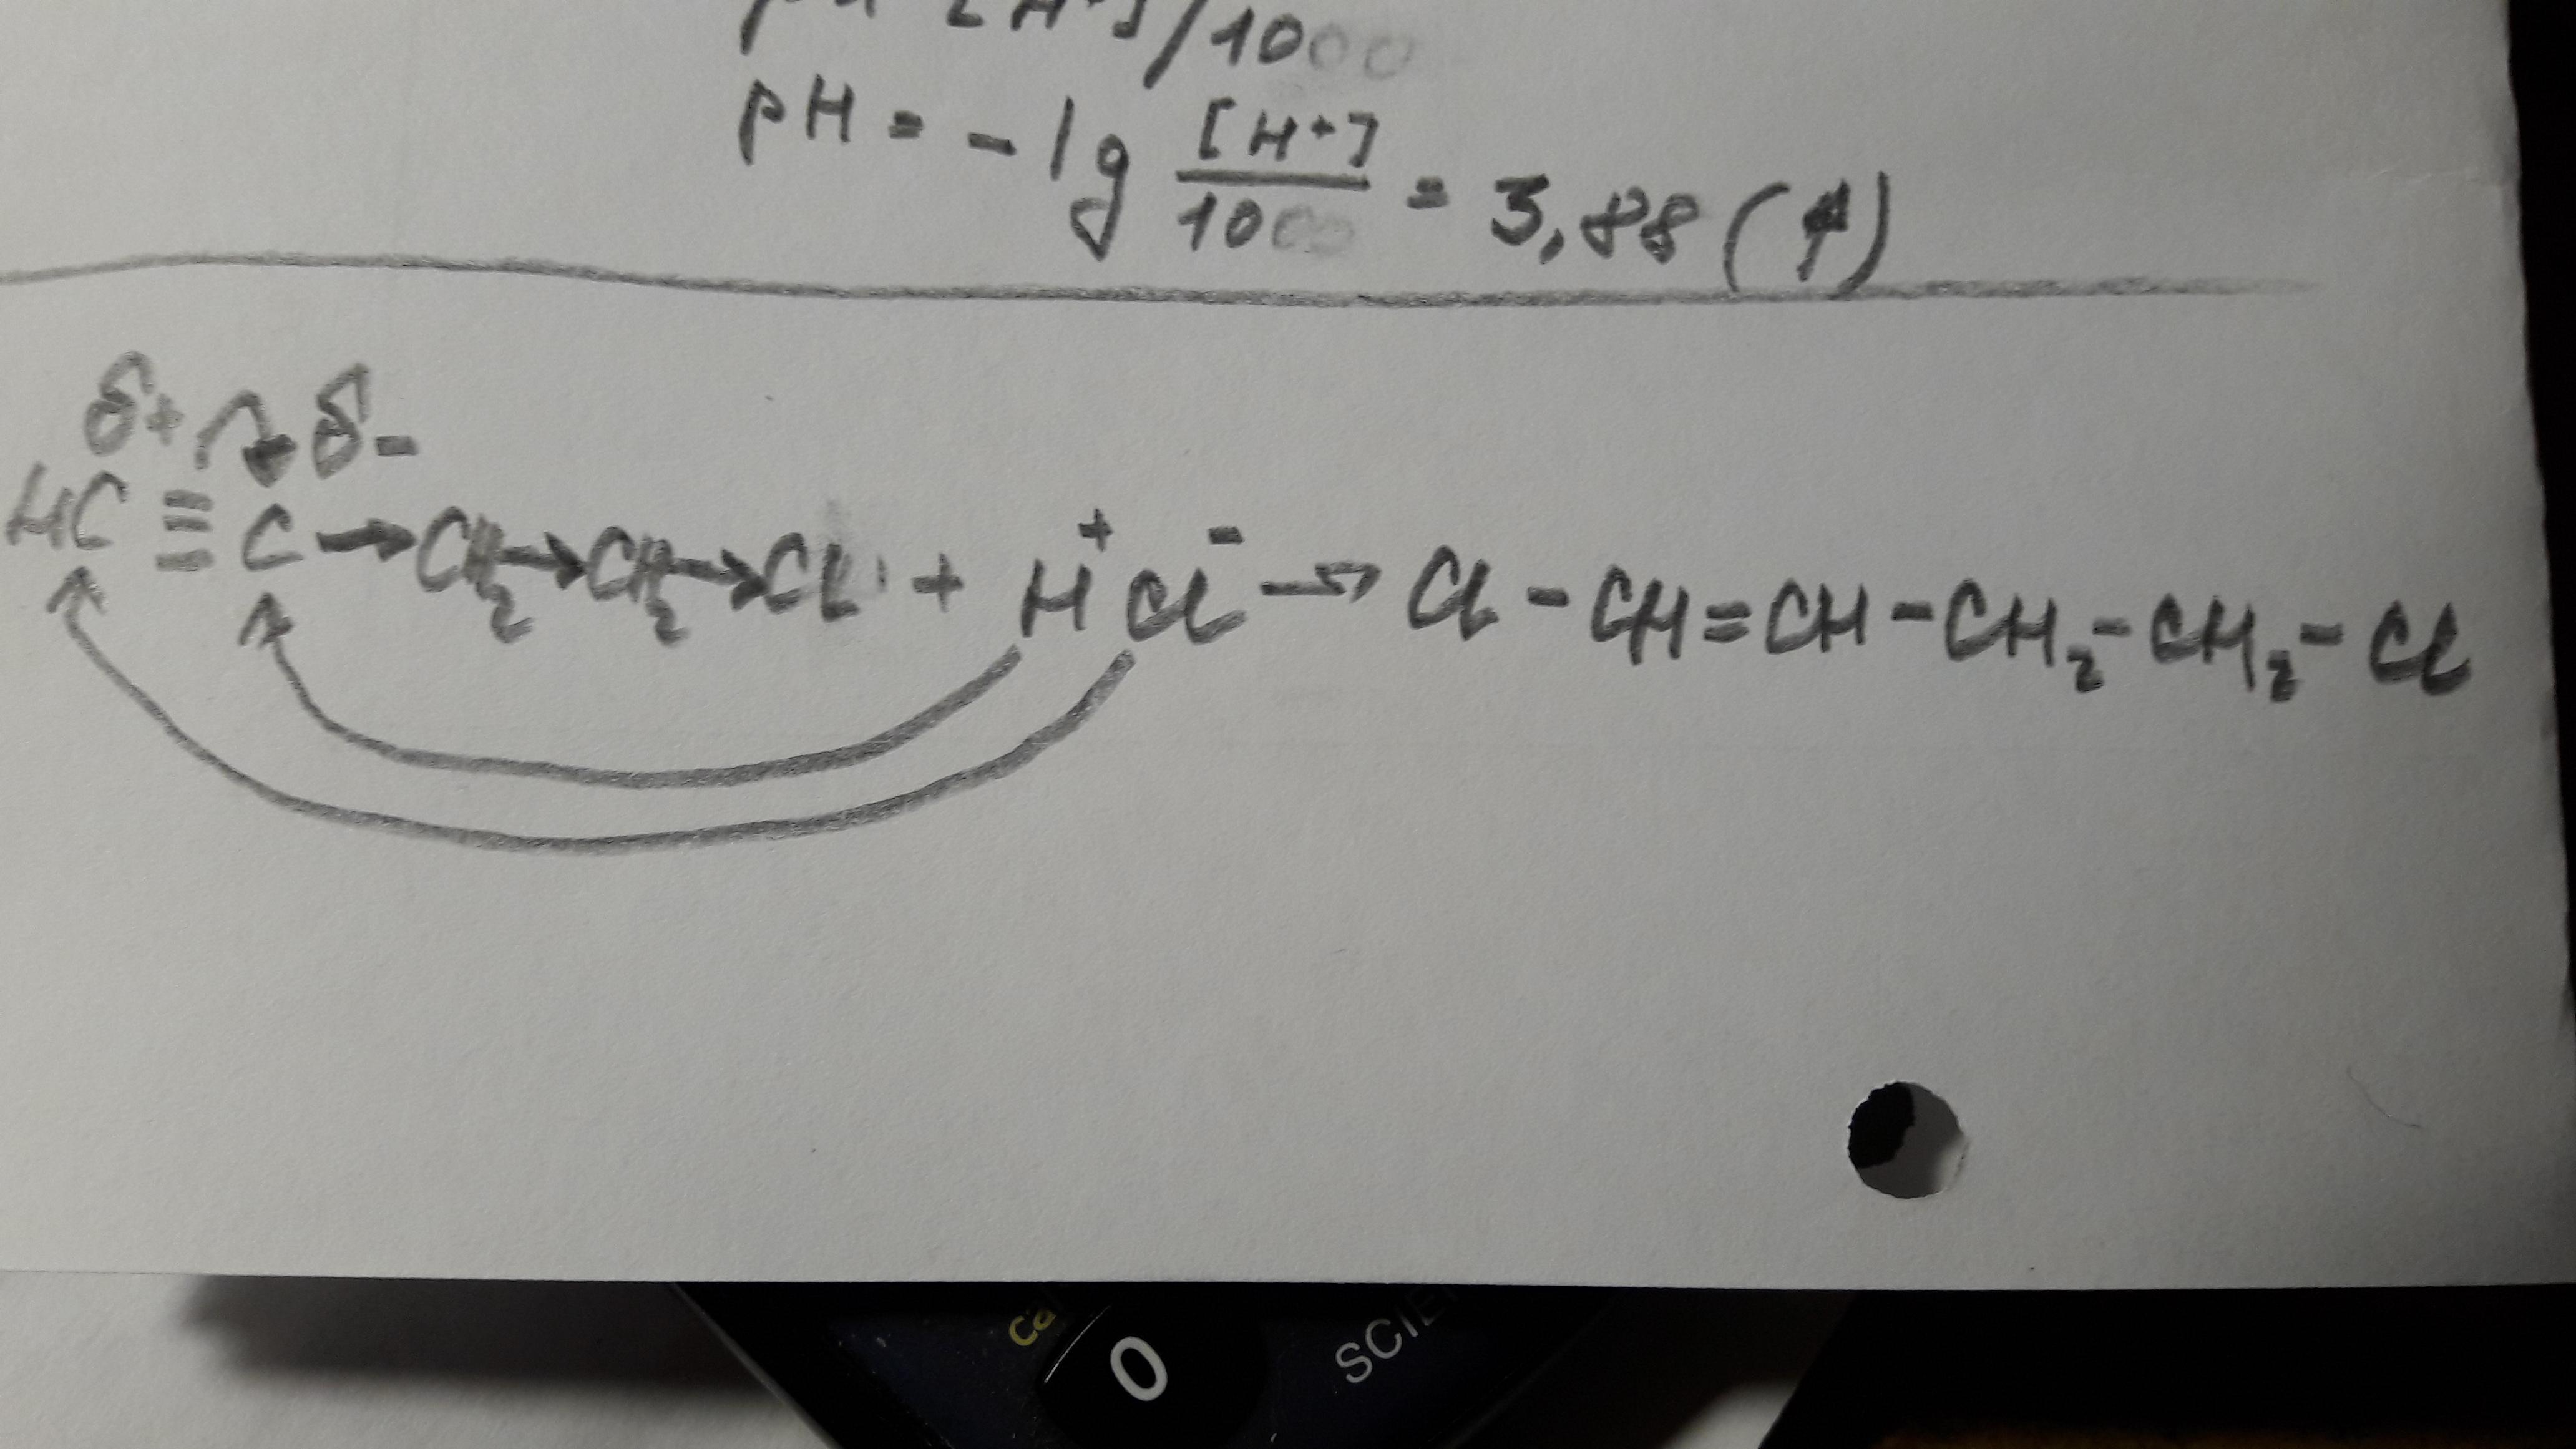 [H+]/1000
pH = -lg [H+]/1000 = 3,88 (
δ+ δ-
HC ≡ C → CH2 → CH2 → Cl + H+ Cl- → Cl - CH = CH - CH2 - CH2 - Cl
0